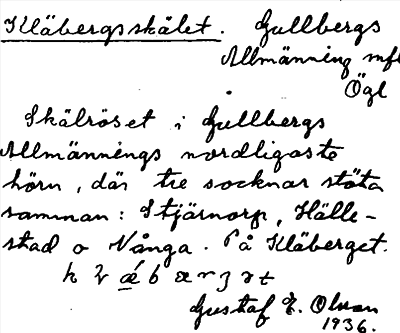 Kläbergsskälet. Gullbergs
Allmänning mfl
Ögl
Skälröset i Gullbergs
Allmännings nordligaste
hörn, där tre socknar stöta
samman: Stjärnorp, Hälle-
stad o Vånga. På Kläberget.
Gustaf E. Olson
1936.